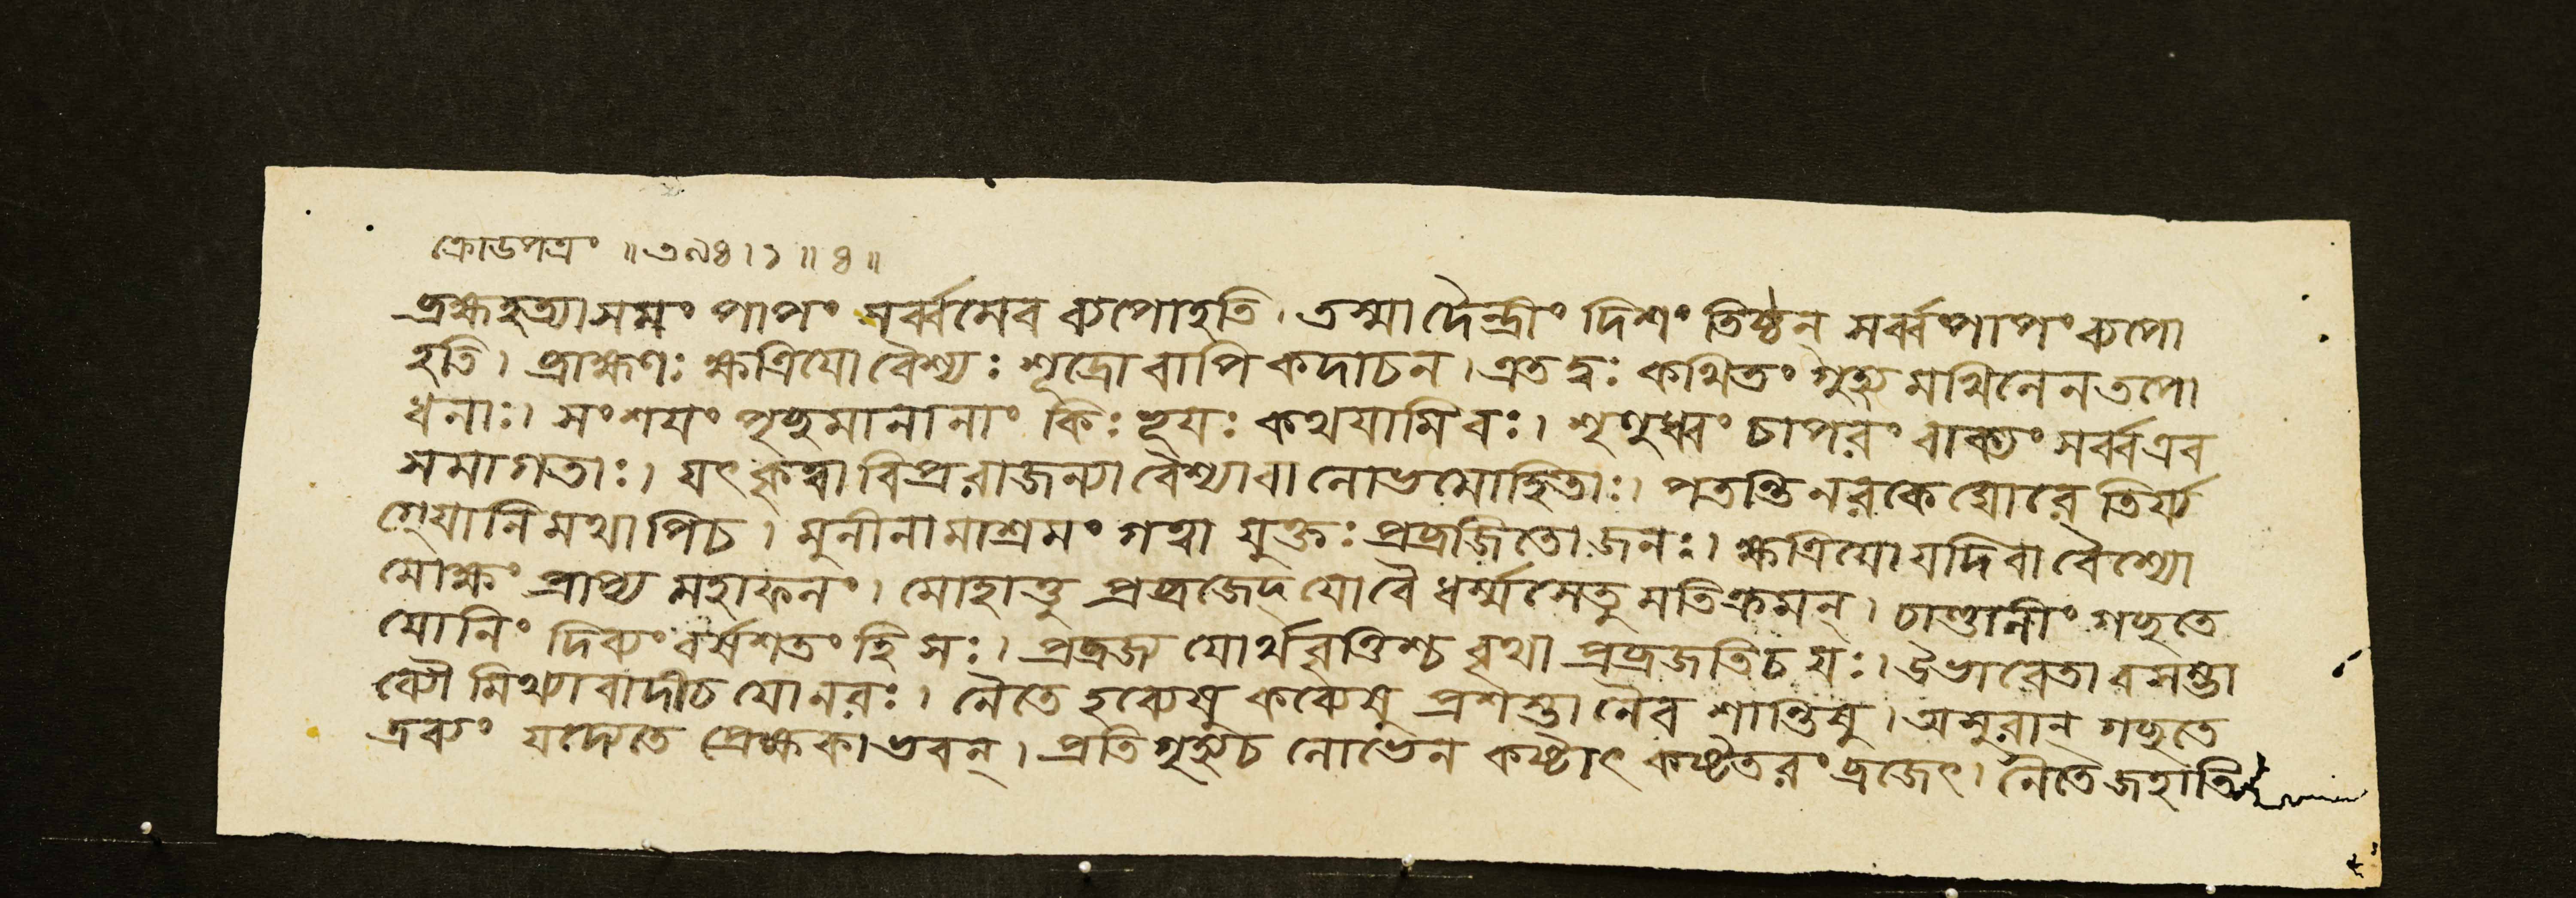 ক্রোডপত্রং ॥ ৩৯৪ । ১ ॥ ৪ ॥
ব্রহ্মহত্যাসমং পাপং সর্ব্বমেব ব্যপোহতি । তস্মাদৈন্দ্রীং দিশং তিষ্ঠেন সর্ব্বং পাপং ব্যপো
হতি । ব্রাহ্মণঃ ক্ষত্রিযো বৈশ্যঃ শূদ্রো বাপি কদাচন । এতদ্বঃ কথিতং গুহ্যমখিলেন তপো
ধনাঃ । সংশযং পৃচ্ছমানানাং কিং ভূযঃ কথযামি বঃ । শৃণুধ্বং চাপরং বাক্যং সর্ব্ব এব
সমাগতাঃ । যৎ কৃত্বা বিপ্ররাজন্যা বৈশ্যা বা লোভমোহিতাঃ । পতন্তি নরকে ঘোরে তির্য্য
গ্যোনিমথাপি চ । মুনীনামাশ্রমং গত্বা যুক্তঃ প্রব্রজিতো জনঃ । ক্ষত্রিযো যদি বা বৈশ্যো
মোক্ষং প্রাপ্য মহাফলং । মোহাত্তু প্রব্রজেদ্ যো বৈ ধর্ম্মসেতুমতিক্রমন্ । চাণ্ডালীং গচ্ছতে
যোনিং দিব্যং বর্ষশতং হি সঃ । প্রব্রজ্য যোর্থবৃত্তিশ্চ বৃথা প্রব্রজতি চ যঃ । উভাবেতাবসম্ভা
ষ্যৌ মিথ্যাবাদী চ যো নরঃ । নৈতে হব্যেষু কব্যেষু প্রশস্তা নৈব শান্তিষু । অসুরান্ গচ্ছতে
দ্রব্যং যদ্যেতে প্রেক্ষকা ভবন্ । প্রতিগৃহ্য চ লোভেন কষ্টাৎ কষ্টতরং ব্রজেৎ । নৈতে জহাতি